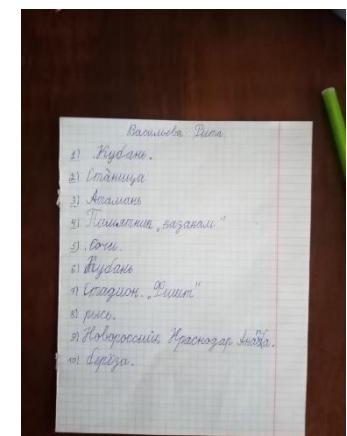 Васильева Рита
1) Кубань.
2) Станица
3) Атамань
4) Памятник „казакам"
5) Сочи.
6) Кубань
7) Стадион „Фишт"
8) рысь.
9) Новороссийк Краснодар Анапа.
10) берёза.